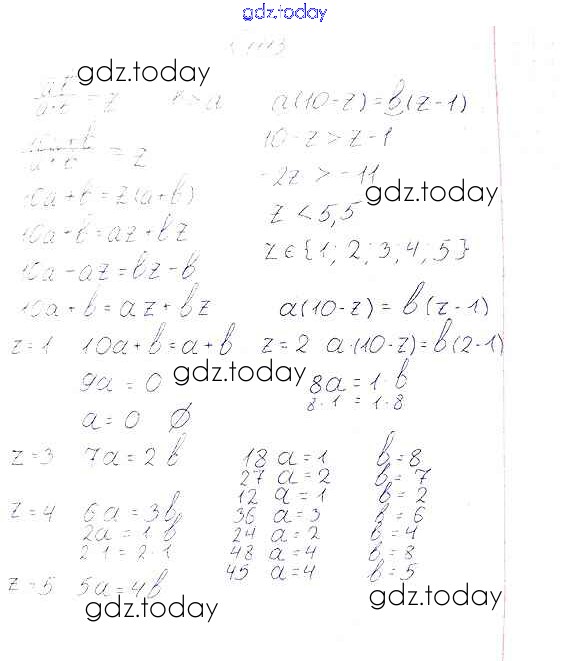 gdz.today
1113
gdz.today
ab/a+b = z b > a a(10-z) = b(z-1)
10a+b/a+b = z 10-z > z-1
-2z > -11
gdz.today
10a+b = z(a+b) z < 5,5
10a+b = az+bz z ∈ {1; 2; 3; 4; 5}
10a-az = bz-b
10a+b = az+bz a(10-z) = b(z-1)
z=1 10a+b = a+b z=2 a·(10-z) = b(2-1)
gdz.today
9a = 0 8a = 1·b
8·1 = 1·8
a = 0 ∅
z=3 7a = 2b 18 a=1 b=8
27 a=2 b=7
12 a=1 b=2
z=4 6a = 3b 36 a=3 b=6
2a = 1·b 24 a=2 b=4
2·1 = 2·1 48 a=4 b=8
45 a=4 b=5
z=5 5a = 4b
gdz.today
gdz.today